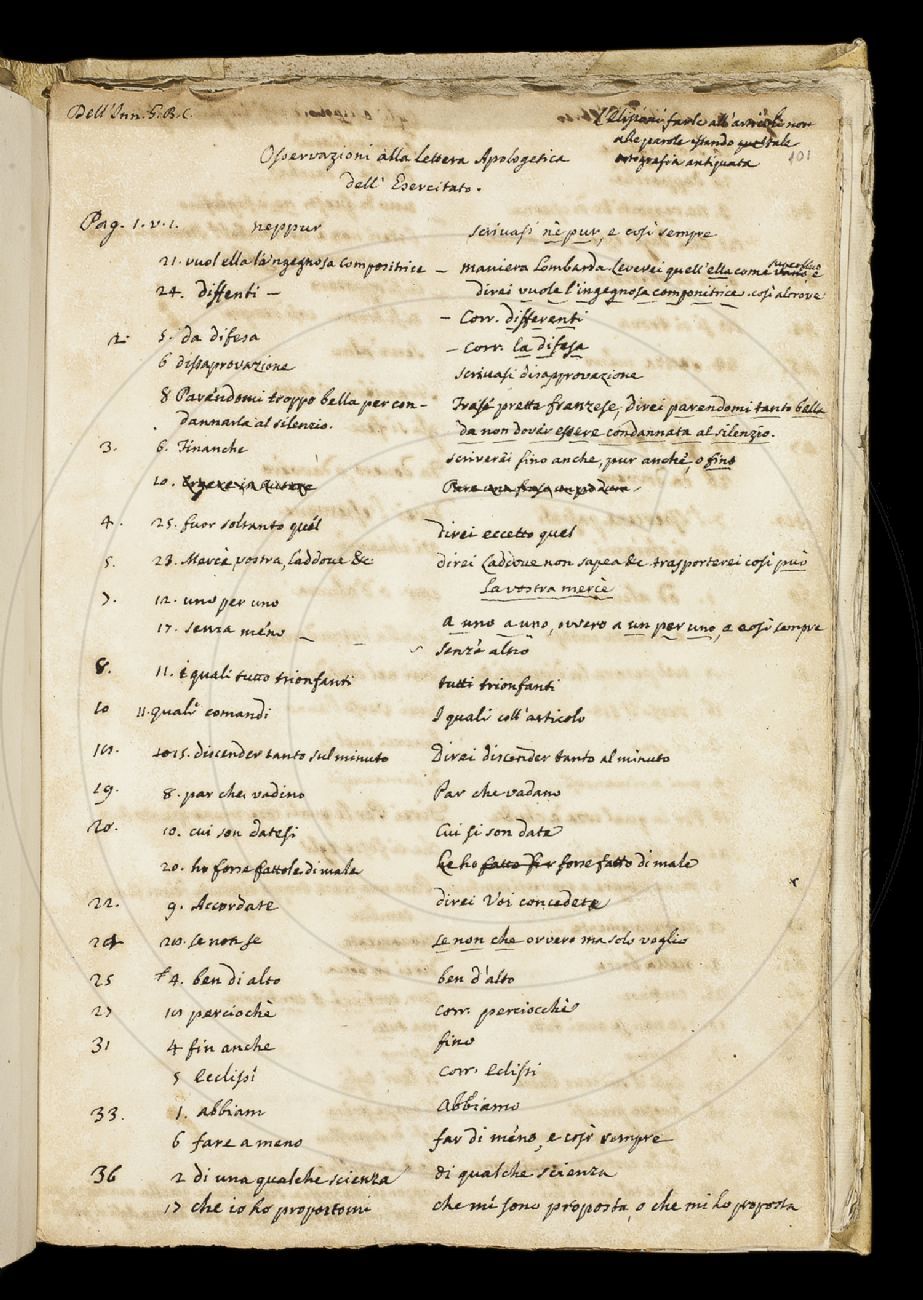 Dell'Inn. G. B. C.
L'elisioni farle all'articoli non
alle parole essendo tale
ortografia antiquata
101
Osservazioni alla lettera Apologetica
dell' Esercitato.
Pag. 1. v. 1. neppur scrivasi nè pur, e così sempre
21. vuol ella la'ngegnosa compositrice – maniera Lombarda leverei quell'ella come superfluo e
24. diffenti – direi vuole l'ingegnosa componitrice così altrove
– Corr. differenti
2. 5. da difesa – corr. la difesa
6 dissaprovazione scrivasi disapprovazione
8 Parendomi troppo bella per con- Frase pretta franzese, direi parendomi tanto bella
dannarla al silenzio. da non dover essere condannata al silenzio.
3. 6. Finanche scriverei fino anche, pur anche, o fino
10.
4. 25. fuor soltanto quel direi eccetto quel
5. 23. Mercè vostra, laddove &c direi laddove non sapea &c trasporterei così può
la vostra mercè
7. 12. uno per uno A uno a uno, ovvero a un per uno, e così sempre
17. senza méno – senz'altro
8. 11. i quali tutto trionfanti tutti trionfanti
10 11. quali comandi I quali coll'articolo
15. discender tanto sul minuto Direi discender tanto al minuto
19. 8. par che vadino Par che vadano
20. 10. cui son datesi Cui si son date
20. ho forse fattole di male Le ho forse fatto di male
22. 9. Accordate direi Voi concedete
24 20. se non se se non che ovvero ma solo voglio
25 4. ben di alto ben d'alto
27 perciochè corr. perciocchè
31 4 fin anche fino
5 Ecclissi Corr. Eclissi
33. 1. abbiam Abbiamo
6 fare a meno far di méno, e così sempre
36 2 di una qualche scienza di qualche scienza
17 che io ho propostomi che mi sono proposta, o che mi ho proposta